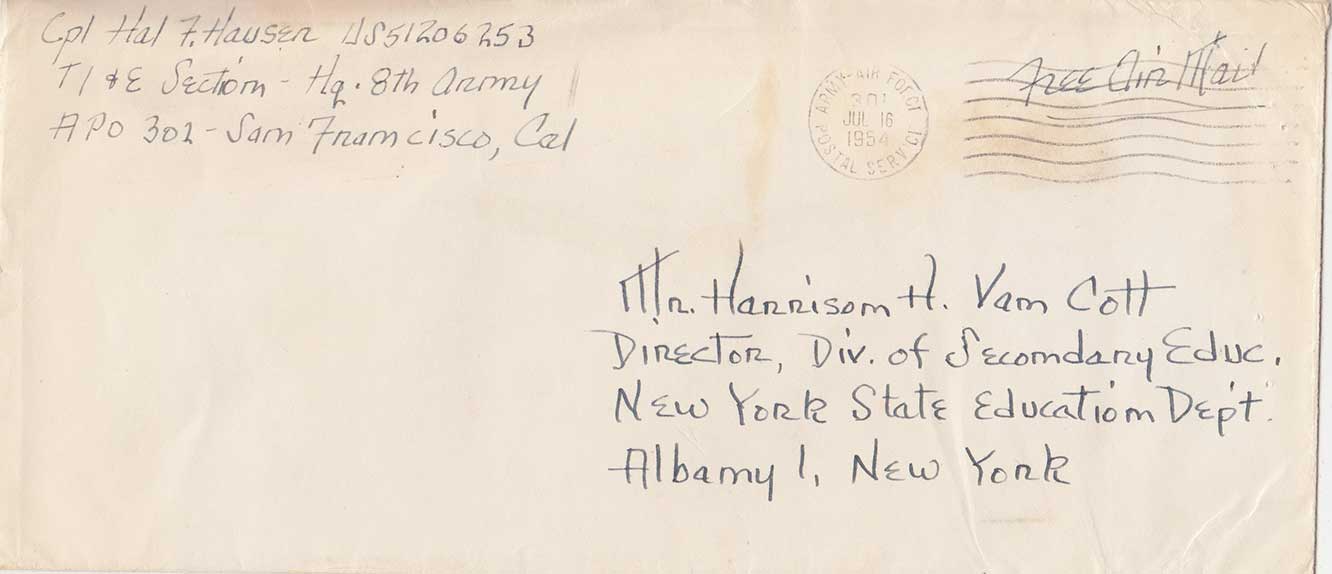 Cpl Hal F. Hausen US51206253
TI & E Section - Hq. 8th Army
APO 301 - San Francisco, Cal
Free Air Mail
ARMY-AIR FORCE
301
JUL 16
1954
POSTAL SERVICE
Mr. Harrison H. Van Cott
Director, Div. of Secondary Educ.
New York State Education Dept.
Albany 1, New York